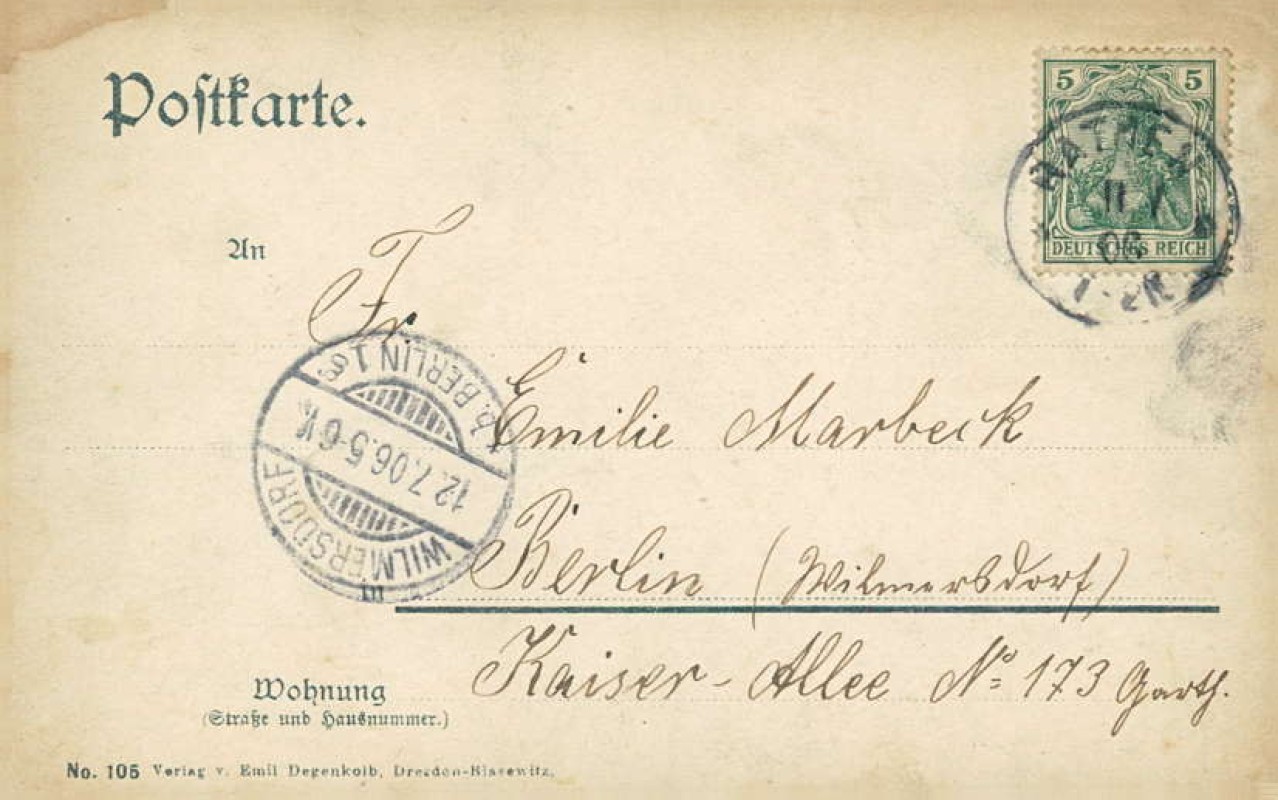 Postkarte.
5 5
11 7
06
DEUTSCHES REICH
An
Fr.
b. BERLIN 1
12.7.06.5-6
WILMERSDORF
Emilie Marbeck
Berlin (Wilmersdorf)
Kaiser-Allee No 173 Garth.
Wohnung
(Straße und Hausnummer.)
No. 105 Verlag v. Emil Degenkolb, Dresden-Blasewitz.